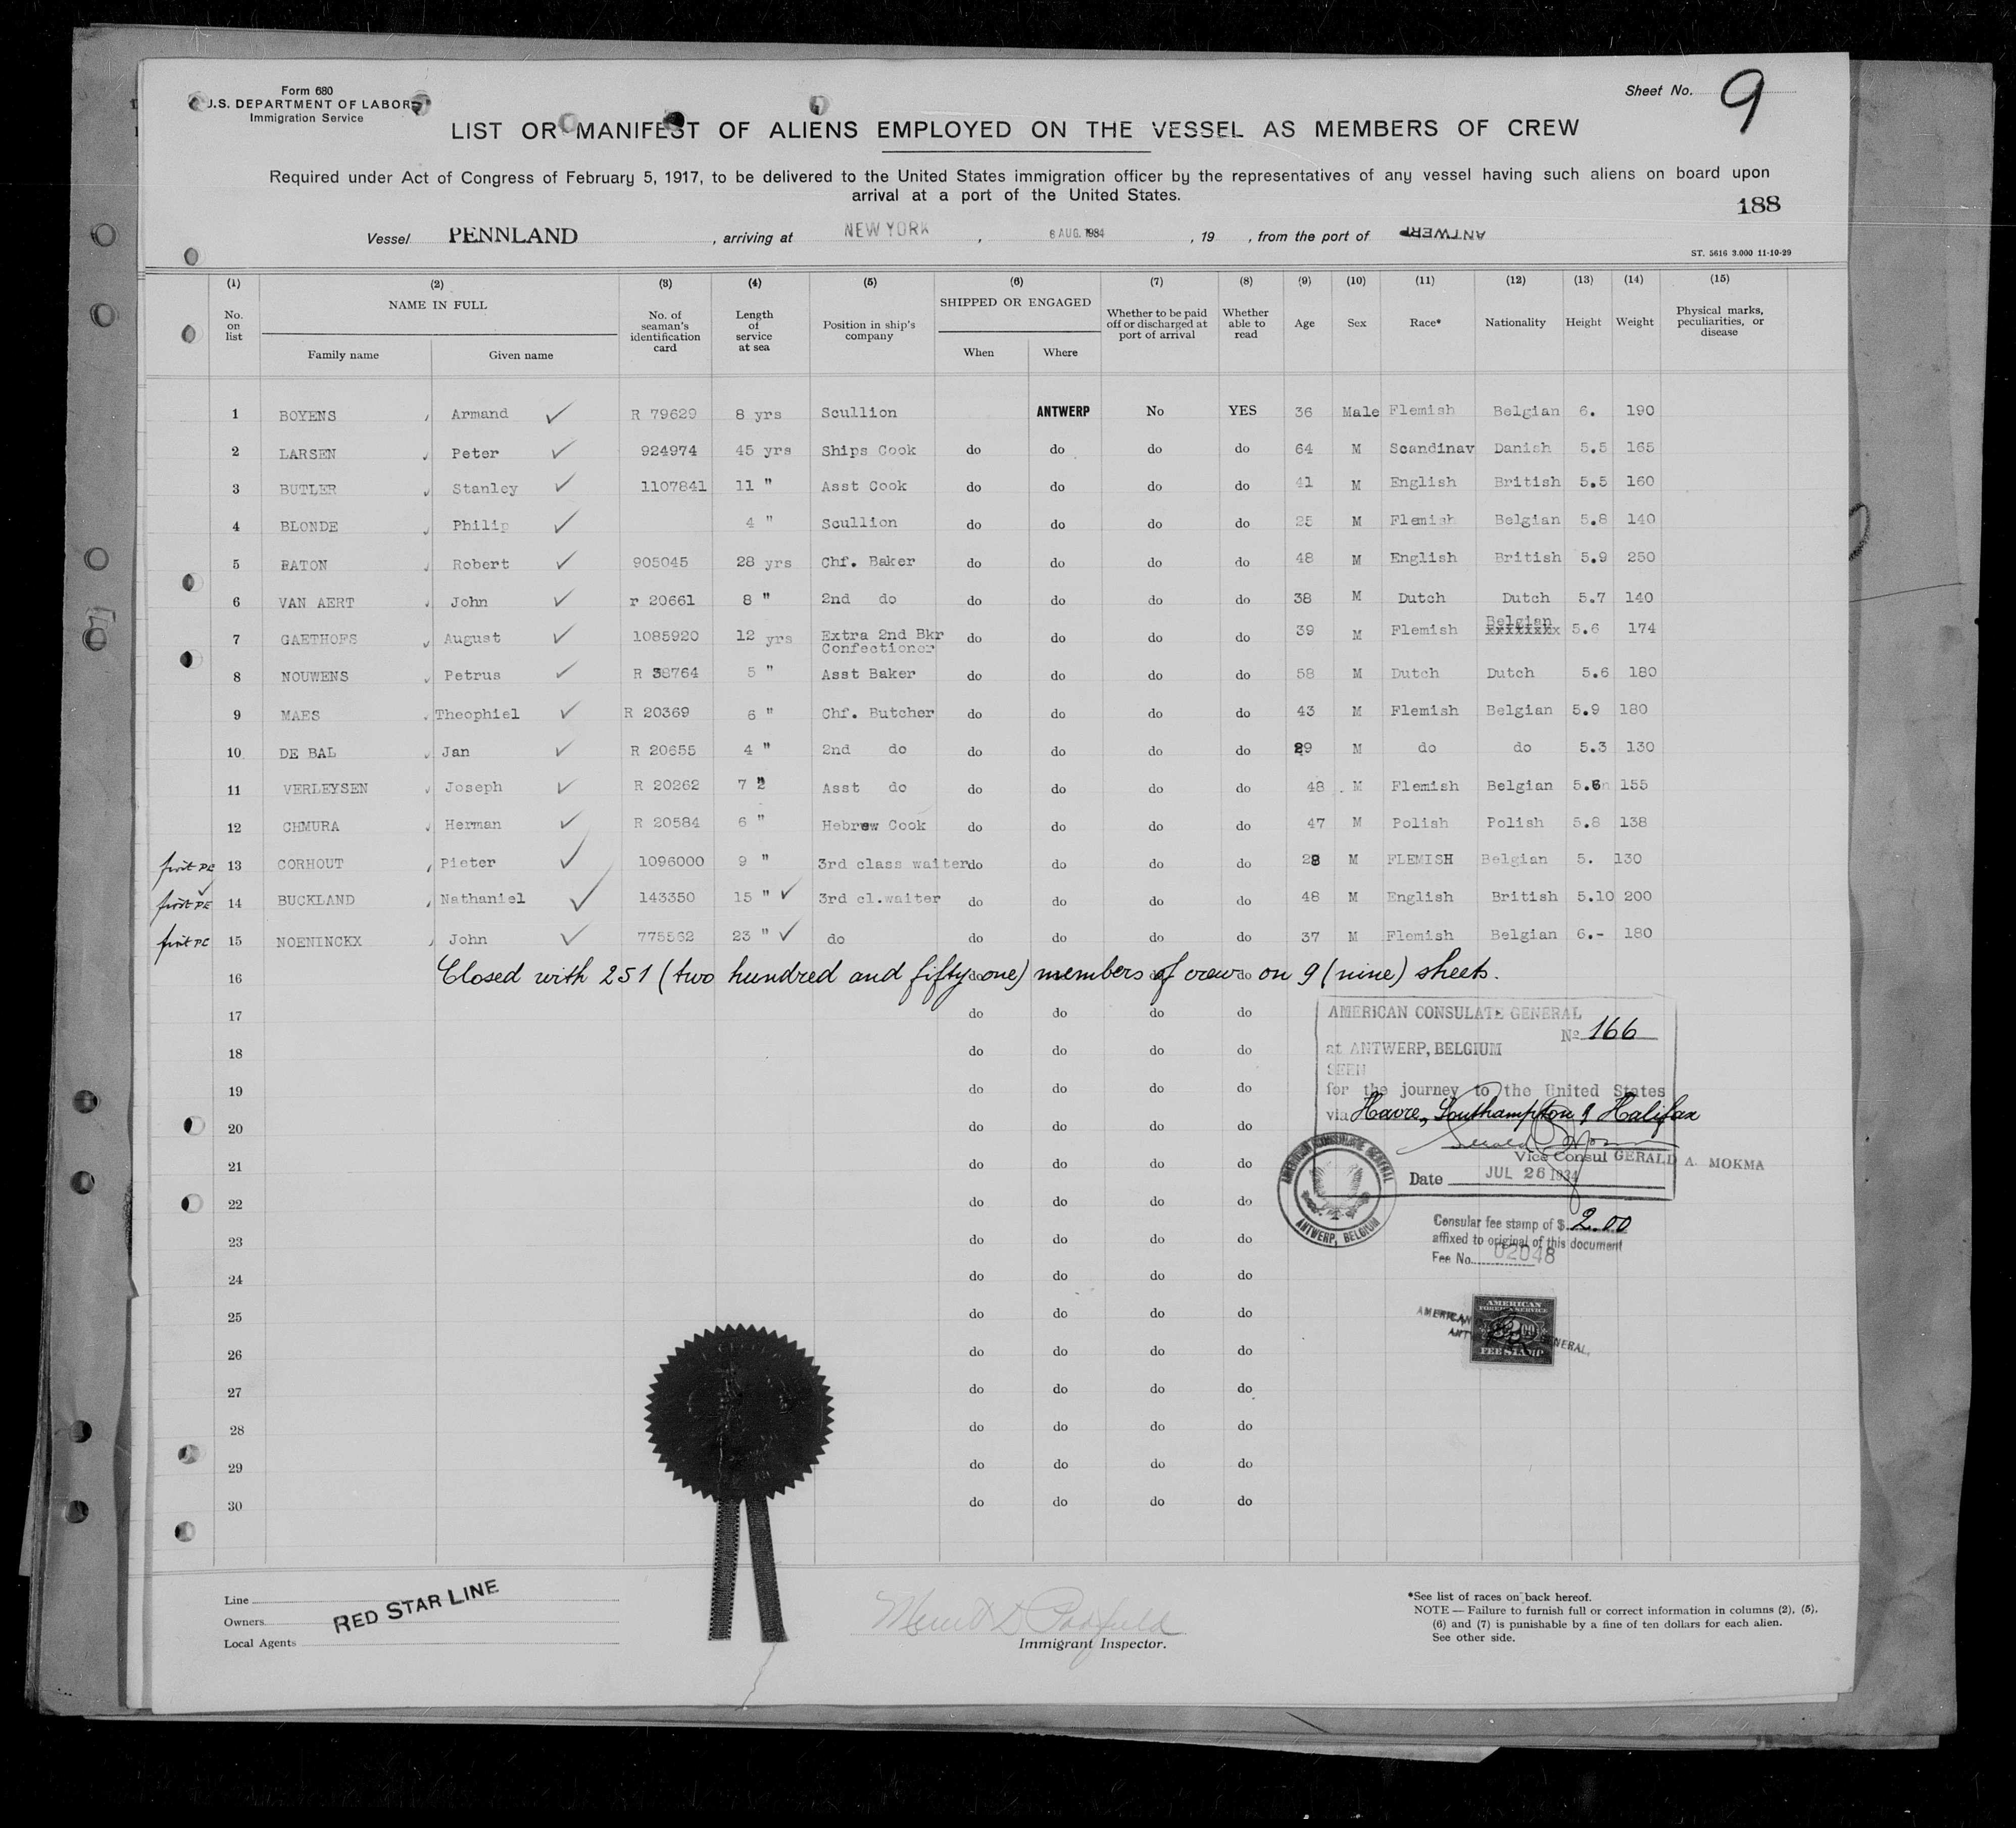 Form 680
U.S. DEPARTMENT OF LABOR
Immigration Service
Sheet No. 9
LIST OR MANIFEST OF ALIENS EMPLOYED ON THE VESSEL AS MEMBERS OF CREW
Required under Act of Congress of February 5, 1917, to be delivered to the United States immigration officer by the representatives of any vessel having such aliens on board upon
arrival at a port of the United States.
188
Vessel PENNLAND, arriving at NEW YORK, 6 AUG. 1934, 19 , from the port of ANTWERP
ST. 5616 3.000 11-10-29
(1) (2) (3) (4) (5) (6) (7) (8) (9) (10) (11) (12) (13) (14) (15)
No. on list NAME IN FULL Family name Given name No. of seaman's identification card Length of service at sea Position in ship's company SHIPPED OR ENGAGED When Where Whether to be paid off or discharged at port of arrival Whether able to read Age Sex Race* Nationality Height Weight Physical marks, peculiarities, or disease
1 BOYENS Armand R 79629 8 yrs Scullion ANTWERP No YES 36 Male Flemish Belgian 6. 190
2 LARSEN Peter 924974 45 yrs Ships Cook do do do do 64 M Scandinav Danish 5.5 165
3 BUTLER Stanley 1107841 11 " Asst Cook do do do do 41 M English British 5.5 160
4 BLONDE Philip 4 " Scullion do do do do 25 M Flemish Belgian 5.8 140
5 RATON Robert 905045 28 yrs Chf. Baker do do do do 48 M English British 5.9 250
6 VAN AERT John r 20661 8 " 2nd do do do do do 38 M Dutch Dutch 5.7 140
7 GAETHOFS August 1085920 12 yrs Extra 2nd Bkr Confectioner do do do do 39 M Flemish Belgian xxxxxxxx 5.6 174
8 NOUWENS Petrus R 38764 5 " Asst Baker do do do do 58 M Dutch Dutch 5.6 180
9 MAES Theophiel R 20369 6 " Chf. Butcher do do do do 43 M Flemish Belgian 5.9 180
10 DE BAL Jan R 20655 4 " 2nd do do do do do 29 M do do 5.3 130
11 VERLEYSEN Joseph R 20262 7 " Asst do do do do do 48 M Flemish Belgian 5.6 155
12 CHMURA Herman R 20584 6 " Hebrew Cook do do do do 47 M Polish Polish 5.8 138
13 CORHOUT Pieter 1096000 9 " 3rd class waiter do do do do 28 M FLEMISH Belgian 5. 130
14 BUCKLAND Nathaniel 143350 15 " 3rd cl.waiter do do do do 48 M English British 5.10 200
15 NOENINCKX John 775562 23 " do do do do do 37 M Flemish Belgian 6.- 180
16 do do do do
Closed with 251 (two hundred and fifty one) members of crew on 9 (nine) sheets.
17 do do do do
18 do do do do
19 do do do do
20 do do do do
21 do do do do
22 do do do do
23 do do do do
24 do do do do
25 do do do do
26 do do do do
27 do do do do
28 do do do do
29 do do do do
30 do do do do
AMERICAN CONSULATE GENERAL
No 166
at ANTWERP, BELGIUM
SEEN
for the journey to the United States
via Havre, Southampton & Halifax
Vice Consul GERALD A. MOKMA
Date JUL 26 1934
AMERICAN CONSULATE GENERAL
ANTWERP, BELGIUM
Consular fee stamp of $ 2.00
affixed to original of this document
Fee No. 02048
AMERICAN
FOREIGN SERVICE
FEE STAMP
Line
Owners RED STAR LINE
Local Agents
Immigrant Inspector.
*See list of races on back hereof.
NOTE — Failure to furnish full or correct information in columns (2), (5),
(6) and (7) is punishable by a fine of ten dollars for each alien.
See other side.